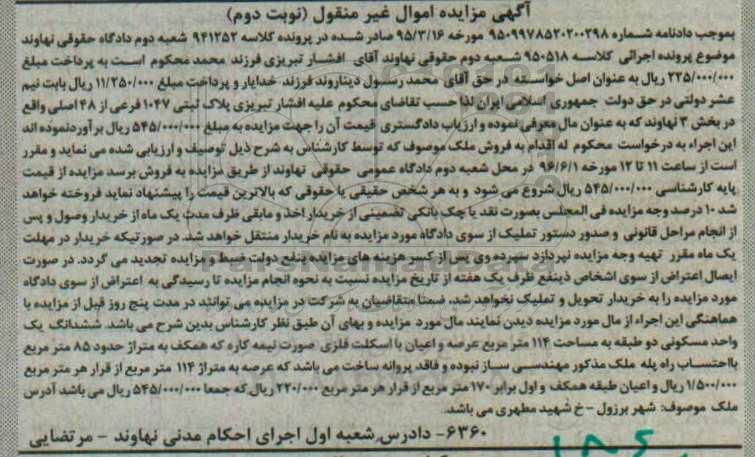 آگهی مزایده اموال غیر منقول (نوبت دوم)
بموجب دادنامه شماره ۹۵۰۹۹۷۸۵۲۰۲۰۰۲۹۸ مورخه ۹۵/۳/۱۶ صادر شده در پرونده کلاسه ۹۴۱۲۵۲ شعبه دوم دادگاه حقوقی نهاوند
موضوع پرونده اجرائی کلاسه ۹۵۰۵۱۸ شعبه دوم حقوقی نهاوند آقای افشار تبریزی فرزند محمد محکوم است به پرداخت مبلغ
۲۲۵/۰۰۰/۰۰۰ ریال به عنوان اصل خواسته در حق آقای محمد رسول دیناروند فرزند خدایار و پرداخت مبلغ ۱۱/۲۵۰/۰۰۰ ریال بابت نیم
عشر دولتی در حق دولت جمهوری اسلامی ایران لذا حسب تقاضای محکوم علیه افشار تبریزی پلاک ثبتی ۱۰۴۷ فرعی از ۴۸ اصلی واقع
در بخش ۳ نهاوند که به عنوان مال معرفی نموده و ارزیاب دادگستری قیمت آن را جهت مزایده به مبلغ ۵۴۵/۰۰۰/۰۰۰ ریال برآوردنموده اند
این اجراء به درخواست محکوم له اقدام به فروش ملک موصوف که توسط کارشناس به شرح ذیل توصیف و ارزیابی شده می نماید و مقرر
است از ساعت ۱۱ تا ۱۲ مورخه ۹۶/۶/۱ در محل شعبه دوم دادگاه عمومی حقوقی نهاوند از طریق مزایده به فروش برسد مزایده از قیمت
پایه کارشناسی ۵۴۵/۰۰۰/۰۰۰ ریال شروع می شود و به هر شخص حقیقی یا حقوقی که بالاترین قیمت را پیشنهاد نماید فروخته خواهد
شد ۱۰ درصد وجه مزایده فی المجلس بصورت نقد یا چک بانکی تضمینی از خریدار اخذ و مابقی ظرف مدت یک ماه از خریدار وصول و پس
از انجام مراحل قانونی و صدور دستور تملیک از سوی دادگاه مورد مزایده به نام خریدار منتقل خواهد شد. در صورتیکه خریدار در مهلت
یک ماه مقرر تهیه وجه مزایده نپردازد سپرده وی پس از کسر هزینه های مزایده بنفع دولت ضبط و مزایده تجدید می گردد. در صورت
ایصال اعتراض از سوی اشخاص ذینفع ظرف یک هفته از تاریخ مزایده نسبت به نحوه انجام مزایده تا رسیدگی به اعتراض از سوی دادگاه
مورد مزایده را به خریدار تحویل و تملیک نخواهد شد. ضمنا متقاضیان به شرکت در مزایده می توانند در مدت پنج روز قبل از مزایده با
هماهنگی این اجراء از مال مورد مزایده دیدن نمایند مال مورد مزایده و بهای آن طبق نظر کارشناس بدین شرح می باشد. ششدانگ یک
واحد مسکونی دو طبقه به مساحت ۱۱۴ متر مربع عرصه و اعیان با اسکلت فلزی صورت نیمه کاره که همکف به متراژ حدود ۸۵ متر مربع
بااحتساب راه پله ملک مذکور مهندسی ساز نبوده و فاقد پروانه ساخت می باشد که عرصه به متراژ ۱۱۴ متر مربع از قرار هر متر مربع
۱/۵۰۰/۰۰۰ ریال و اعیان طبقه همکف و اول برابر ۱۷۰ متر مربع از قرار هر متر مربع ۲/۲۰۰/۰۰۰ ریال که جمعا ۵۴۵/۰۰۰/۰۰۰ ریال می باشد آدرس
ملک موصوف: شهر برزول - خ شهید مطهری می باشد.
۶۳۶۰- دادرس شعبه اول اجرای احکام مدنی نهاوند - مرتضایی